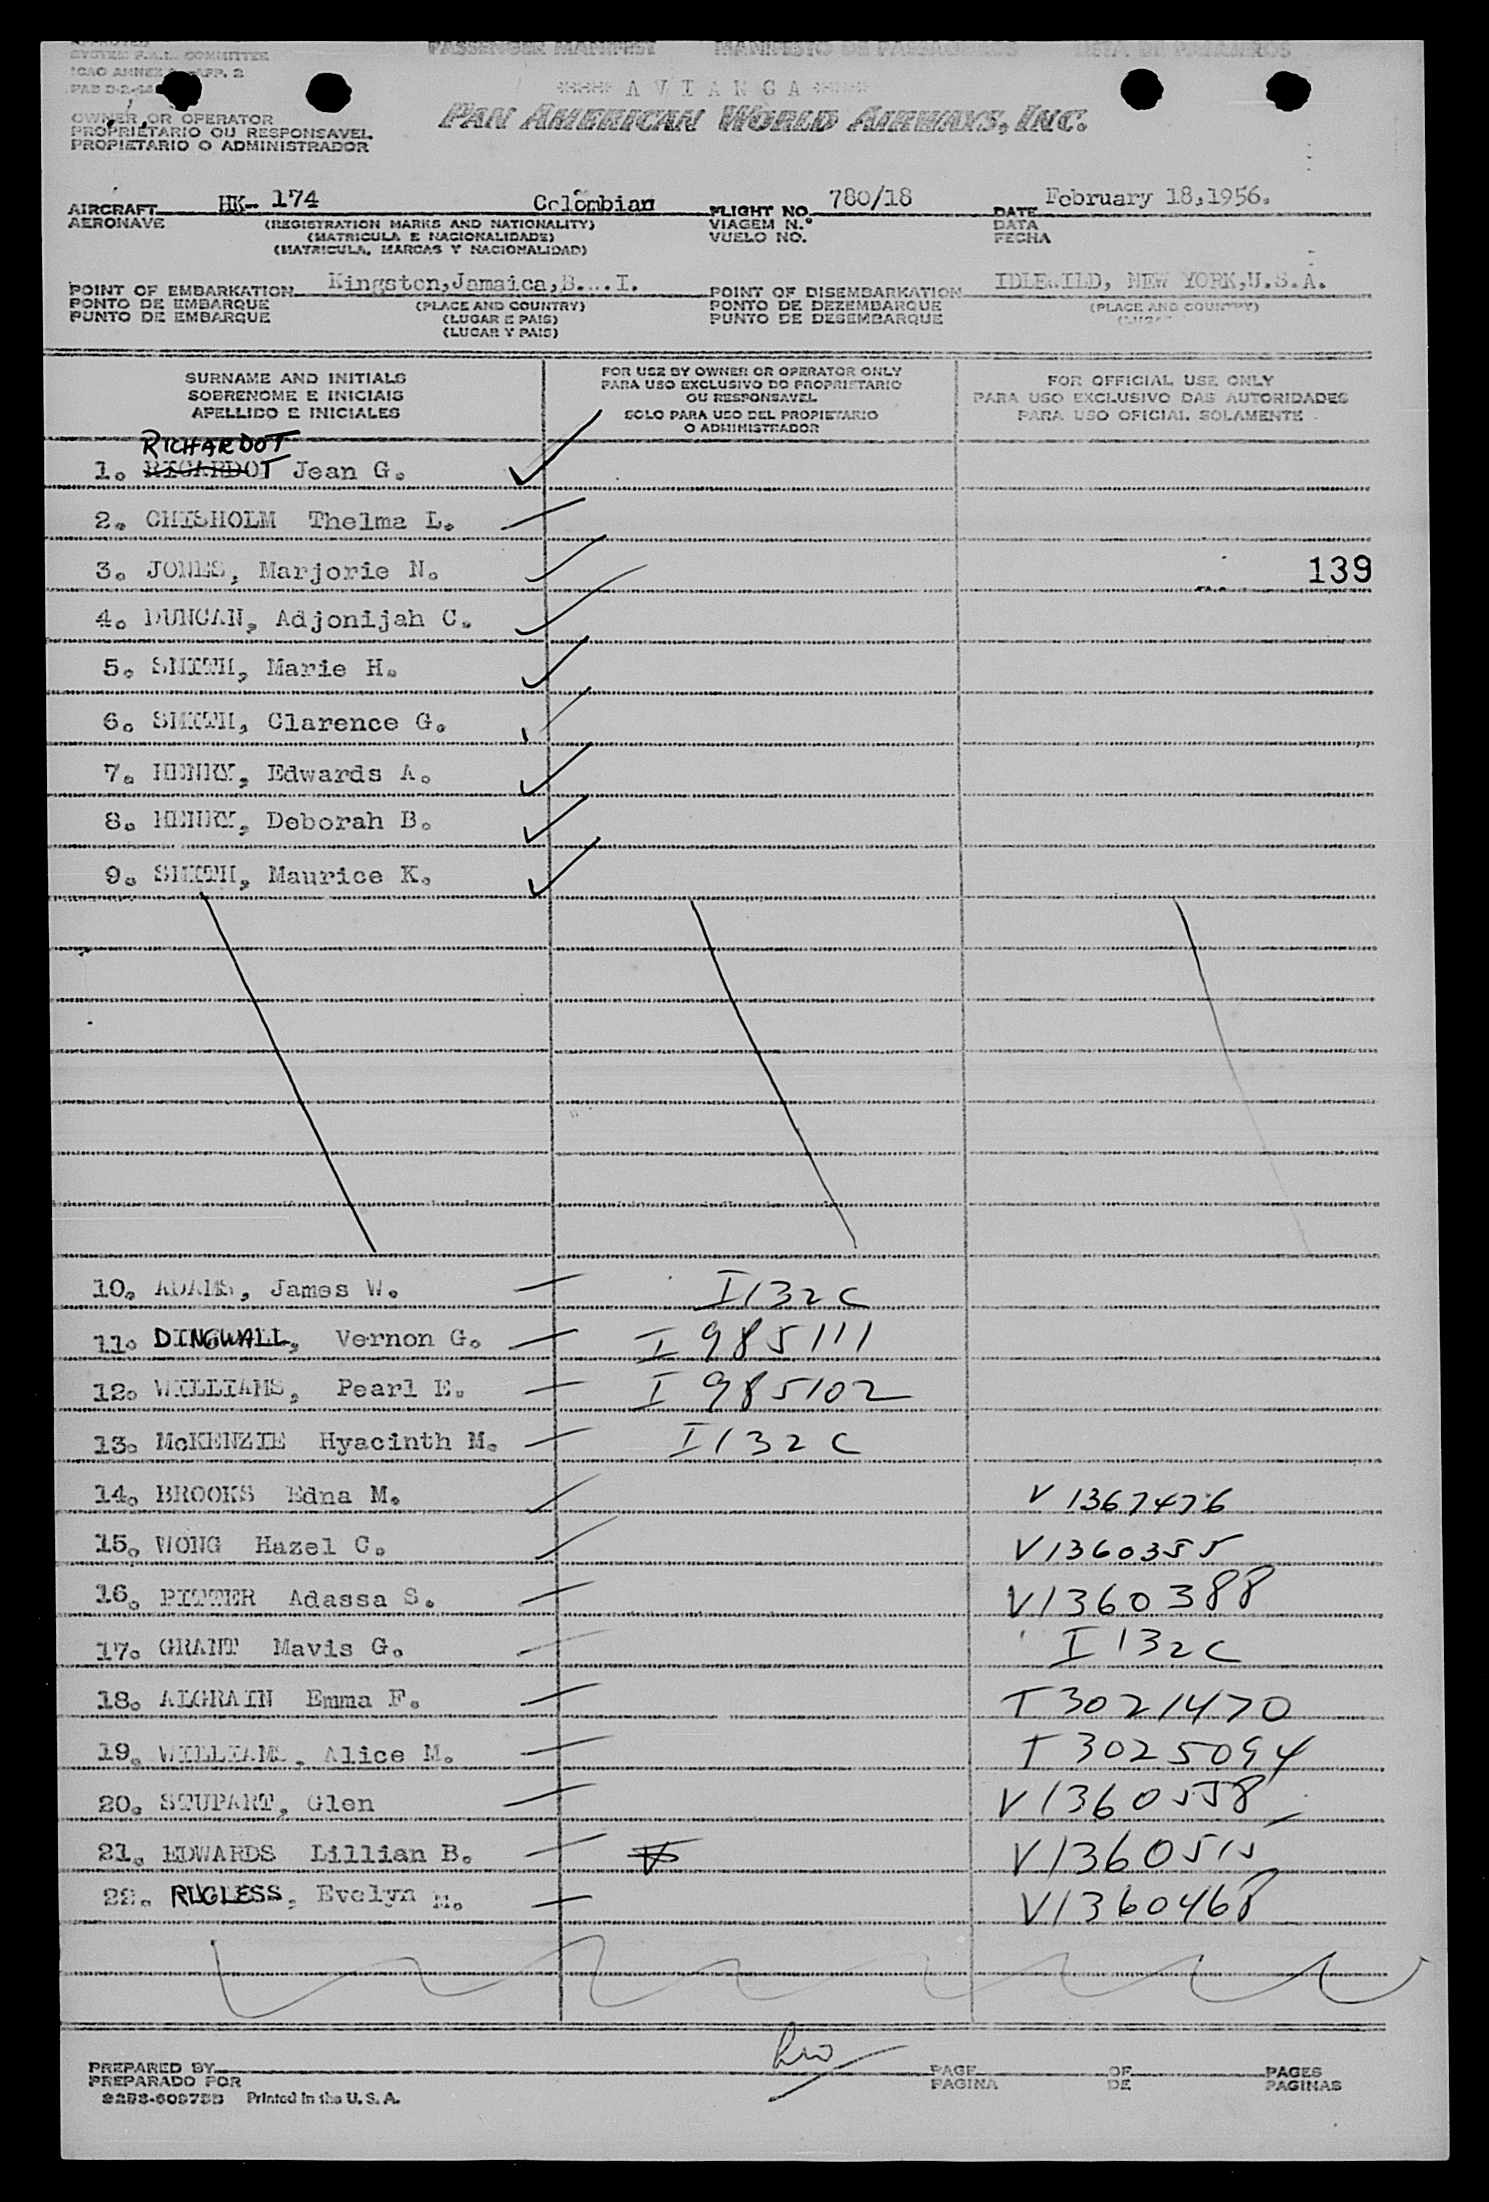 APPROVED
SYSTEM F.A.L. COMMITTEE
ICAO ANNEX APP. 2
PAB D-2-
PASSENGER MANIFEST MANIFESTO DE PASSAGEIROS LISTA DE PASAJEROS
**** A V I A N C A ****
PAN AMERICAN WORLD AIRWAYS, INC.
OWNER OR OPERATOR
PROPRIETARIO OU RESPONSAVEL
PROPIETARIO O ADMINISTRADOR
AIRCRAFT HK- 174 Colombian FLIGHT NO. 780/18 DATE February 18,1956.
AERONAVE (REGISTRATION MARKS AND NATIONALITY) VIAGEM N.° DATA
(MATRICULA E NACIONALIDADE) VUELO NO. FECHA
(MATRICULA, MARCAS Y NACIONALIDAD)
POINT OF EMBARKATION Kingston,Jamaica,B...I. POINT OF DISEMBARKATION IDLE.ILD, NEW YORK,U.S.A.
PONTO DE EMBARQUE (PLACE AND COUNTRY) PONTO DE DEZEMBARQUE (PLACE AND COUNTRY)
PUNTO DE EMBARQUE (LUGAR E PAIS) PUNTO DE DESEMBARQUE
(LUGAR Y PAIS)
SURNAME AND INITIALS
SOBRENOME E INICIAIS
APELLIDO E INICIALES
FOR USE BY OWNER OR OPERATOR ONLY
PARA USO EXCLUSIVO DO PROPRIETARIO
OU RESPONSAVEL
SOLO PARA USO DEL PROPIETARIO
O ADMINISTRADOR
FOR OFFICIAL USE ONLY
PARA USO EXCLUSIVO DAS AUTORIDADES
PARA USO OFICIAL SOLAMENTE
RICHARDOT
1. RICARDOT Jean G.
2. CHISHOLM Thelma L.
3. JONES, Marjorie N. 139
4. DUNCAN, Adjonijah C.
5. SMITH, Marie H.
6. SMITH, Clarence G.
7. HENRY, Edwards A.
8. HENRY, Deborah B.
9. SMITH, Maurice K.
10. ADAMS, James W. I132C
11. DINGWALL, Vernon G. I 985111
12. WILLIAMS, Pearl E. I 985102
13. McKENZIE Hyacinth M. I132 C
14. BROOKS Edna M. V 1367476
15. WONG Hazel C. V1360355
16. PITTER Adassa S. V1360388
17. GRANT Mavis G. I 132C
18. ALGRAIN Emma F. T3021470
19. WILLIAMS, Alice M. T3025094
20. STUPART, Glen V1360558
21. EDWARDS Lillian B. V V1360515
22. RUGLESS, Evelyn M. V1360468
PREPARED BY PAGE OF PAGES
PREPARADO POR PAGINA DE PAGINAS
Printed in the U. S. A.